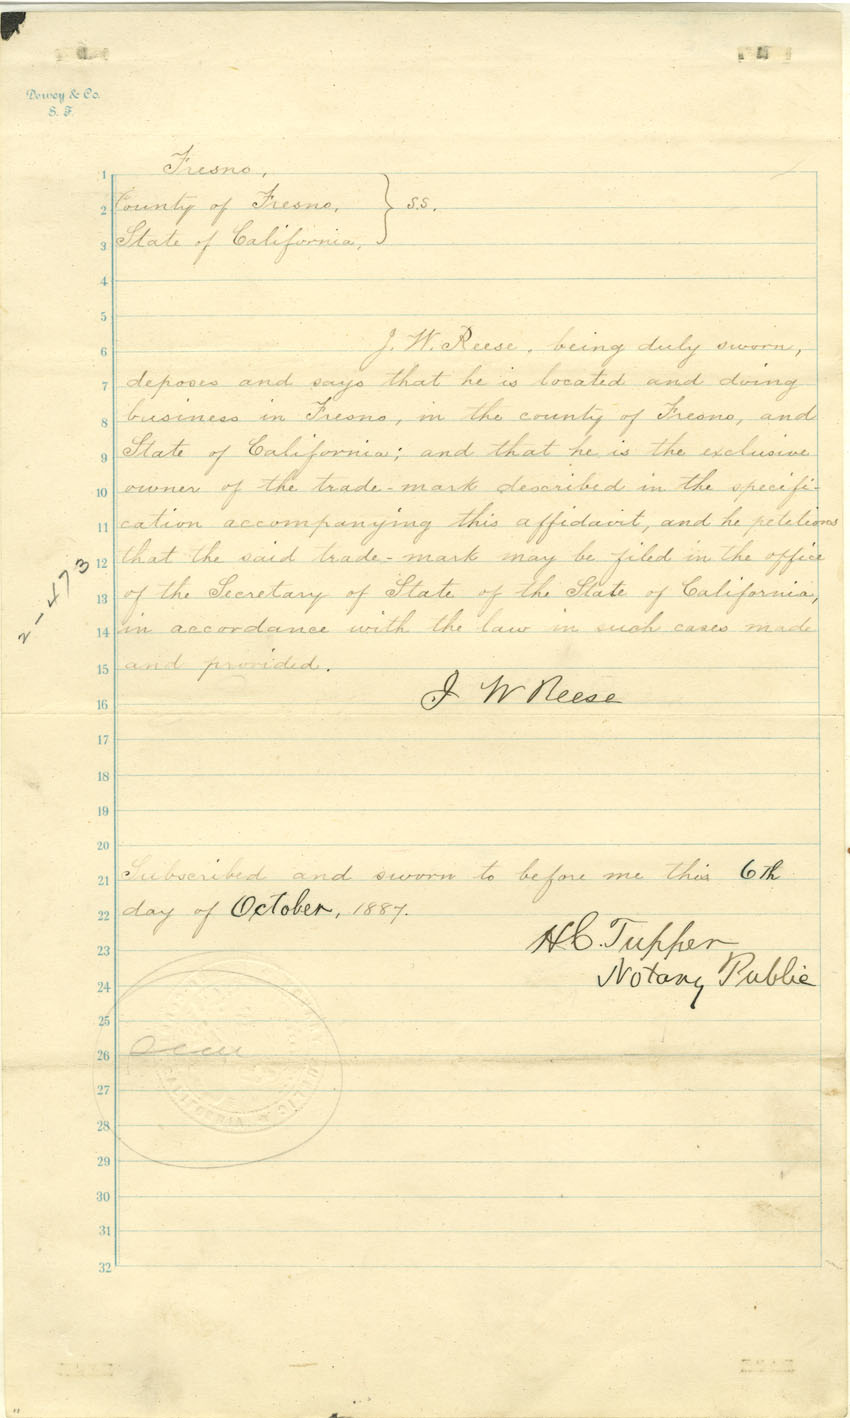 Dewey & Co.
S. F.
1 Fresno,
2 County of Fresno, } S.S.
3 State of California,
4
5
6 J. W. Reese, being duly sworn,
7 deposes and says that he is located and doing
8 business in Fresno, in the county of Fresno, and
9 State of California; and that he is the exclusive
10 owner of the trade-mark described in the specifi-
11 cation accompanying this affidavit, and he petitions
12 that the said trade-mark may be filed in the office
13 of the Secretary of State of the State of California,
14 in accordance with the law in such cases made
15 and provided.
16 J W Reese
2-473
17
18
19
20
21 Subscribed and sworn to before me this 6th
22 day of October, 1887.
23 H.C. Tupper
24 Notary Public
25
26
27
CALIFORNIA
28
29
30
31
32